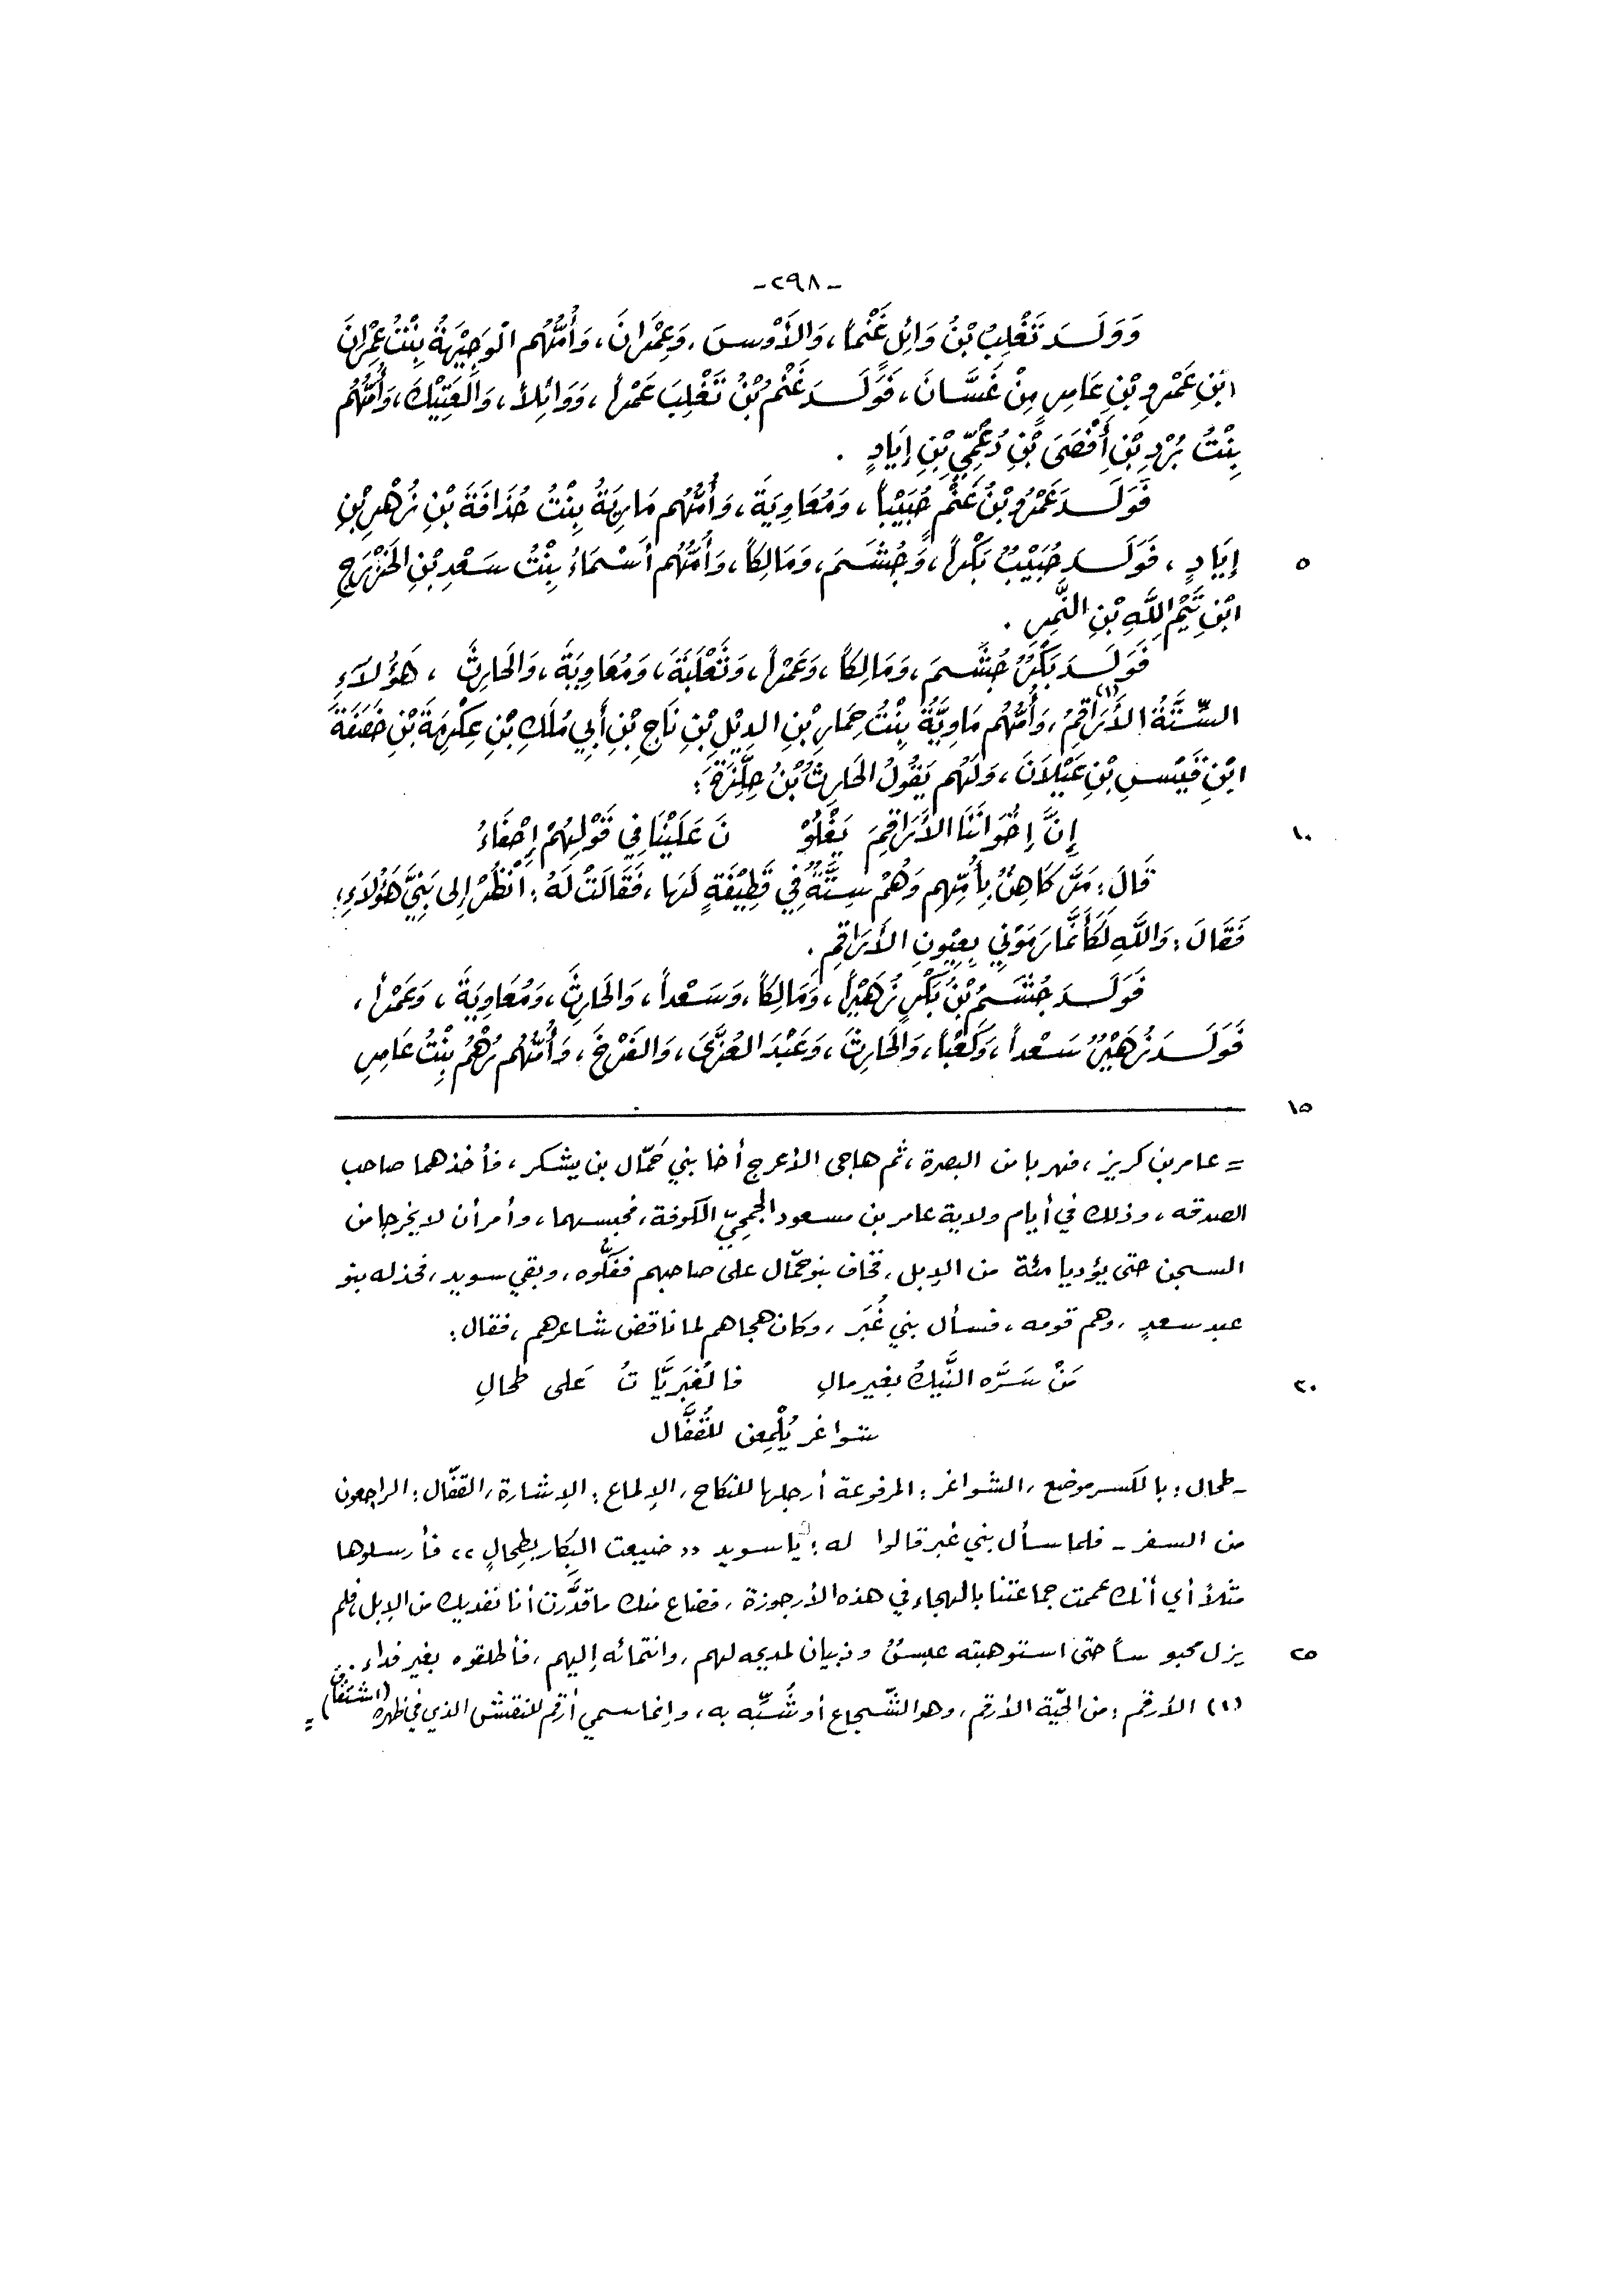 -٢٩٨-
وَوَلَدَ تَغْلِبُ بْنُ وَائِلٍ غَنْماً، وَالأَوْسَ، وَعِمْرَانَ، وَأُمُّهُم الْوَجِيْهَةُ بِنْتُ عِمْرَانَ
ابْنِ عَمْرِو بْنِ عَامِرٍ مِنْ غَسَّانَ، فَوَلَدَ غَنْمُ بْنُ تَغْلِبَ عَمْراً، وَوَائِلاً، وَالعَتِيْكَ، وَأُمُّهُم
بِنْتُ بُرْدِ بْنِ أَفْصَى بْنِ دُعْمِيِّ بْنِ إِيَادٍ .
فَوَلَدَ عَمْرُو بْنُ غَنْمٍ حُبَيْباً، وَمُعَاوِيَةَ، وَأُمُّهُم مَارِيَةُ بِنْتُ حُذَافَةَ بْنِ زُهْرِ بْنِ
٥ إِيَادٍ، فَوَلَدَ حُبَيْبٌ بَكْراً، وَجُشَمَ، وَمَالِكاً، وَأُمُّهُم أَسْمَاءُ بِنْتُ سَعْدِ بْنِ الخَزْرَجِ
ابْنِ تَيْمِ اللَّهِ بْنِ النَّمِرِ .
فَوَلَدَ بَكْرٌ جُشَمَ، وَمَالِكاً، وَعَمْراً، وَثَعْلَبَةَ، وَمُعَاوِيَةَ، وَالحَارِثَ ، هَؤُلاَءِ
السِّتَّةُ الأَرَاقِمُ(١)، وَأُمُّهُم مَاوِيَّةُ بِنْتُ حِمَارِ بْنِ الدِيْلِ بْنِ نَاجِ بْنِ أَبِي مُلَكِ بْنِ عِكْرِمَةَ بْنِ خَصَفَةَ
ابْنِ قَيْسِ بْنِ عَيْلاَنَ، وَلَهُم يَقُولُ الحَارِثُ بْنُ حِلِّزَةَ:
١٠ إِنَّ إِخْوَانَنَا الأَرَاقِمَ يَغْلُوْ نَ عَلَيْنَا فِي قَوْلِهِمْ إِحْفَاءُ
قَالَ: مَرَّ كَاهِنٌ بِأُمِّهِم وَهُمْ سِتَّةٌ فِي قَطِيْفَةٍ لَهَا، فَقَالَتْ لَهُ: انْظُرْ إِلى بَنِيَّ هَؤُلاَءِ؛
فَقَالَ: وَاللَّهِ لَكَأَنَّمَا رَمَوْنِي بِعِيُونِ الأَرَاقِمِ.
فَوَلَدَ جُشَمُ بْنُ بَكْرٍ زُهَيْراً، وَمَالِكاً، وَسَعْداً، وَالحَارِثَ، وَمُعَاوِيَةَ، وَعَمْراً،
فَوَلَدَ زُهَيْرٌ سَعْداً، وَكَعْباً، وَالحَارِثَ، وَعَبْدَ العُزَّى، وَالفَرْخَ، وَأُمُّهُم رُهْمُ بِنْتُ عَامِرِ
١٥
= عامر بن كريز، فهربا من البصرة، ثم هاجى الأعرج أخا بني حَمّال بن يشكر، فأخذهما صاحب
الصدقه، وذلك في أيام ولاية عامر بن مسعود الجمحيّ الكوفة، فحبسهما، وأمر أن لا يخرجا من
السجن حتى يؤديا مئة من الإبل، فخاف بنو حمّال على صاحبهم ففكّوه، وبقي سويد، فخذله بنو
عبد سعدٍ، وهم قومه، فسأل بني غُبَر، وكان هجاهم لما ناقض شاعرهم، فقال:
٢٠ مَنْ سَرَّه النَّيكُ بغير مالِ فالغُبَرِيَّاتُ عَلى طحالِ
شواغر يُلْمِعن للقُفَّال
- طحال: بالكسر موضع، الشواغر: المرفوعة أرجلها للنكاح، الإلماع: الإشارة، القفّال: الراجعون
من السفر - فلما سأل بني غبر قالوا له: يا سويد «ضيعت البِكَار بِطِحالٍ» فأرسلوها
مثلاً أي أنك عممت جماعتنا بالهجاء في هذه الأرجوزة، فضاع منك ما قدَّرت أنا نفديك من الإبل، فلم
٢٥ يزل محبوساً حتى استوهبته عبسٌ وذبيان لمديحه لهم، وانتمائه إليهم، فأطلقوه بغير فداء.
(١) الأرقم: من الحيّة الأرقم، وهو الشّجاع أو شُبِّه به، وإنما سمي أرقم للنقش الذي في ظهره (اشتقاق) =